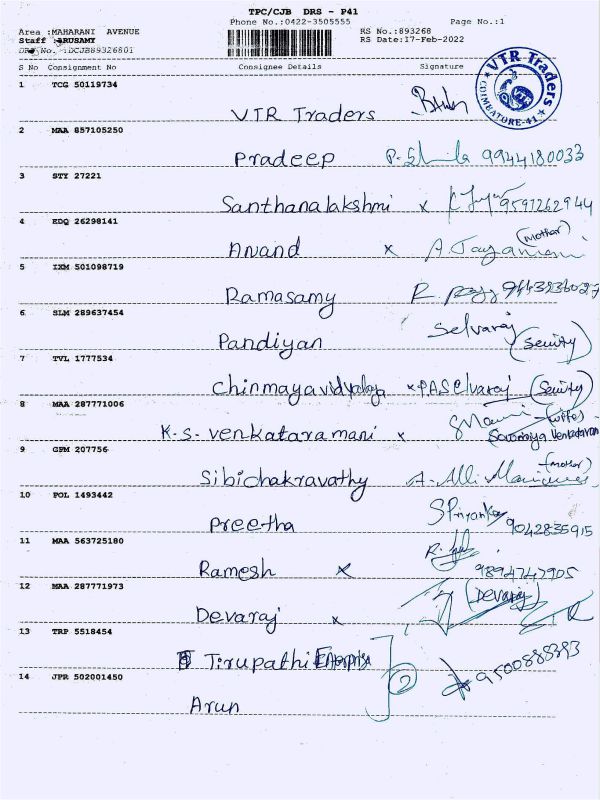 TPC/CJB DRS - P41
Phone No.:0422-3505555 Page No.:1
Area :MAHARANI AVENUE RS No.:893268
Staff :ARUSAMY RS Date:17-Feb-2022
DRS No. :DCJB89326801
S No Consignment No Consignee Details Signature
VTR Traders
COIMBATORE-41
1 TCG 50119734
VTR Traders
2 MAA 857105250
Pradeep 9944180033
3 STY 27221
Santhanalakshmi x 9597262944
4 EDQ 26298141
(mother)
Anand x A. Jayamani
5 IXM 501098719
Ramasamy R.
6 SLM 289637454
Selvaraj
Pandiyan (Seuity)
7 TVL 1777534
Chinmayavidyalaya x PA Selvaraj (Seuity)
8 MAA 287771006
(wife)
K.S. Venkataramani x Sowmiya Venkataraman
9 GFM 207756
(mother)
Sibichakravathy A. Alli
10 POL 1493442
S Priyanka
Preetha 9042835915
11 MAA 563725180
Ramesh x 9894747905
12 MAA 287771973
(Devaraj)
Devaraj x
13 TRP 5518454
Tirupathi Enterprise 9500888393
14 JPR 502001450
Arun